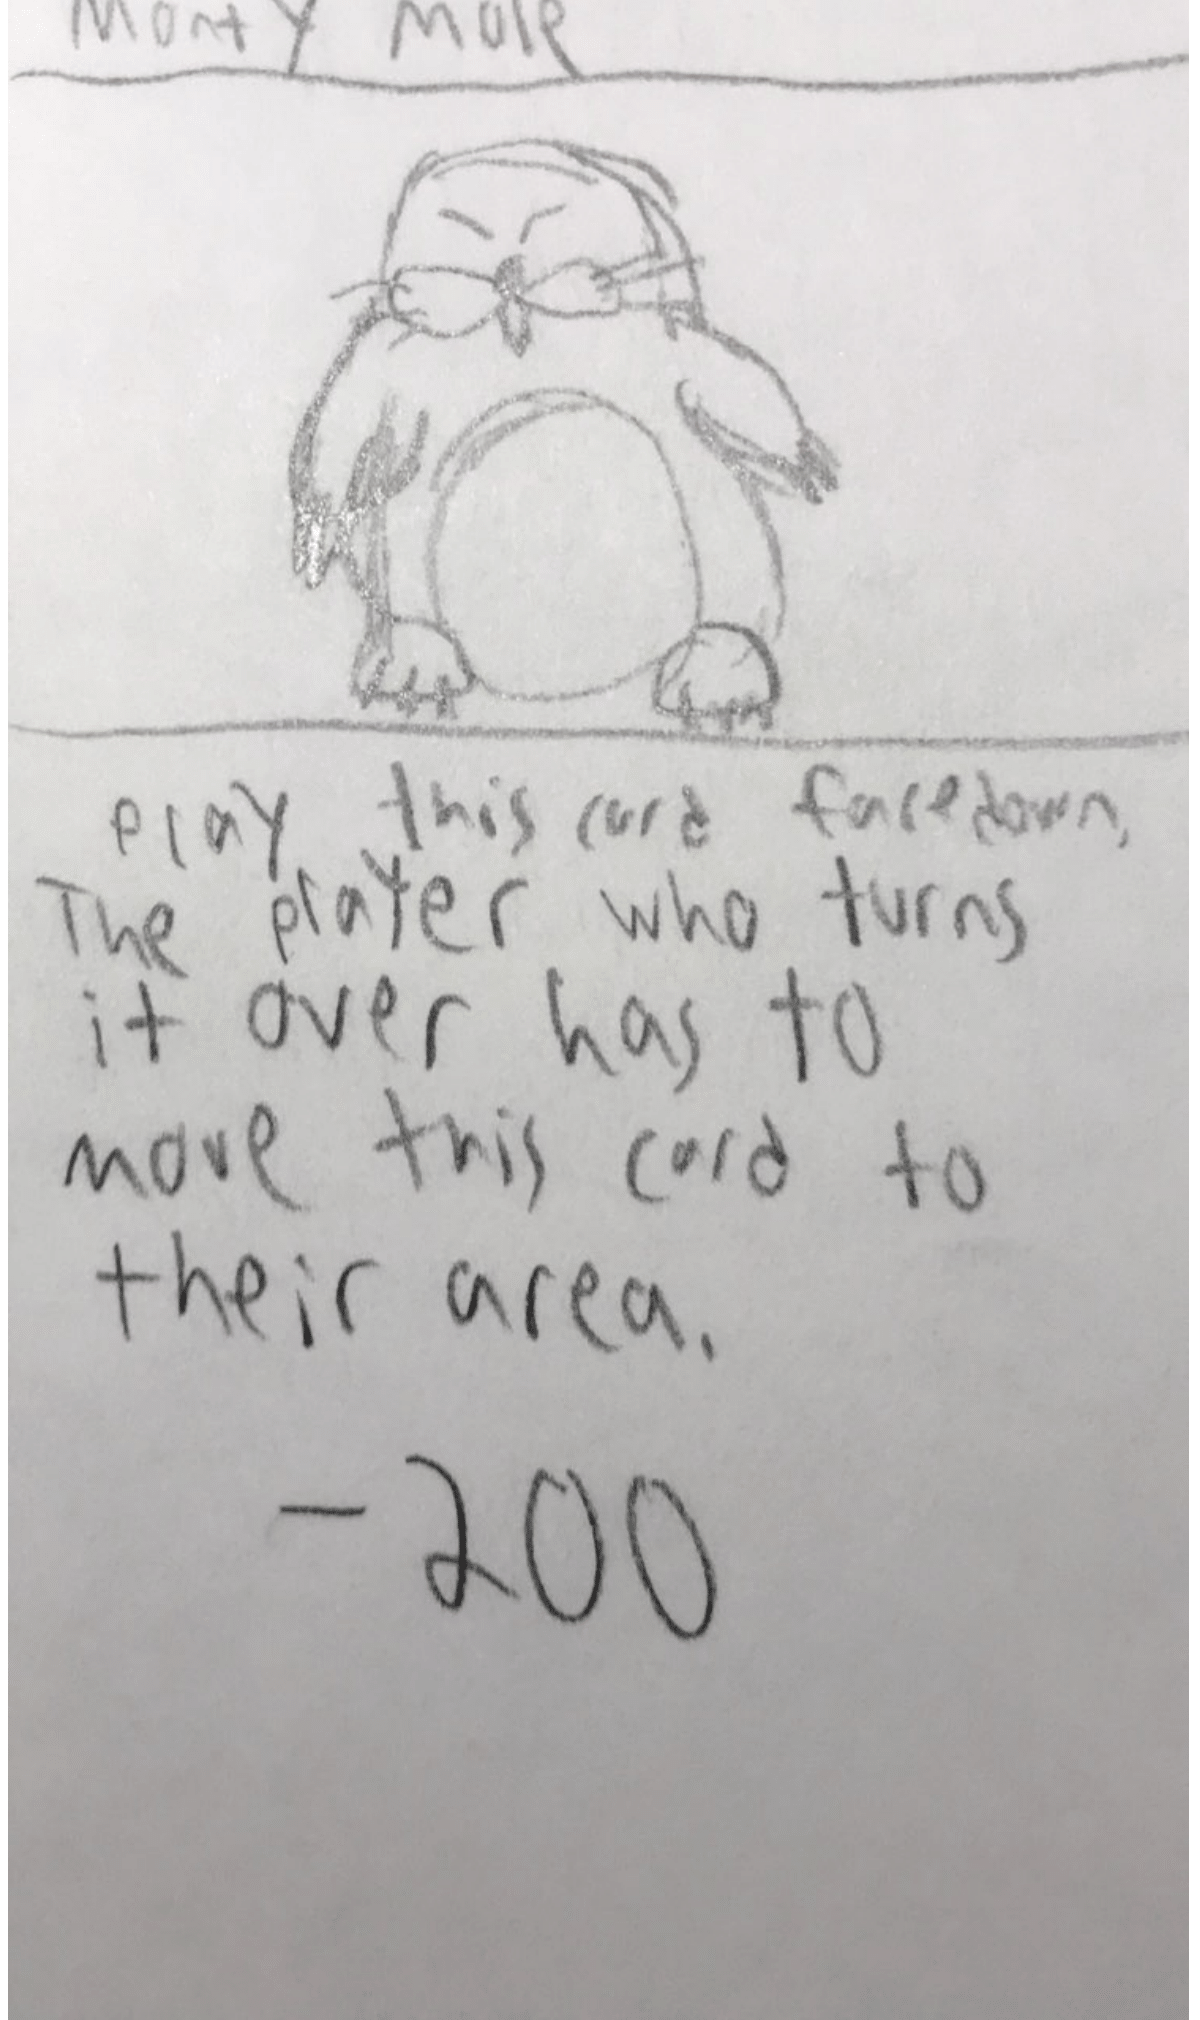 Monty Mole
Play this card facedown.
The player who turns
it over has to
move this card to
their area.
-200